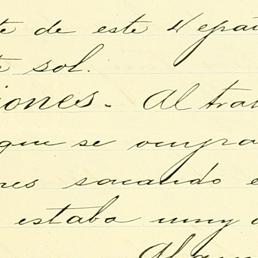 te de este
sol.
iones. Al tra
que se ocupa
res sacando e
estaba muy